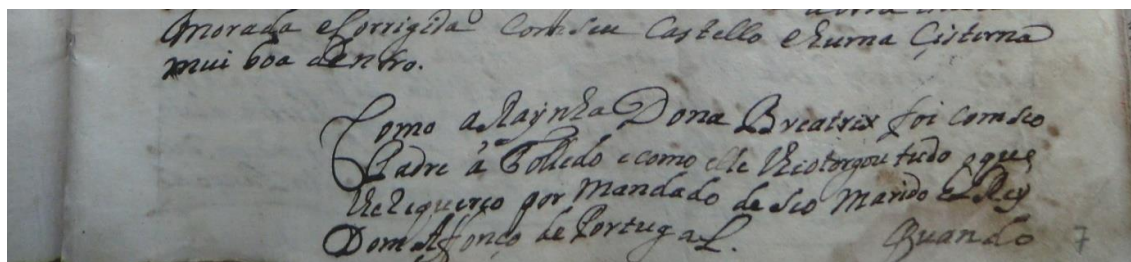 morada e Corrigida Com seu Castello e huma Cisterna
mui boa dentro.
Como a Raynha Dona Breatrix foi com seo
Padre á Tolledo e como elle lhe otorgou tudo o que
lhe requereo por Mandado de seo Marido El Rey
Dom Afonço de Portugal. Quando 7